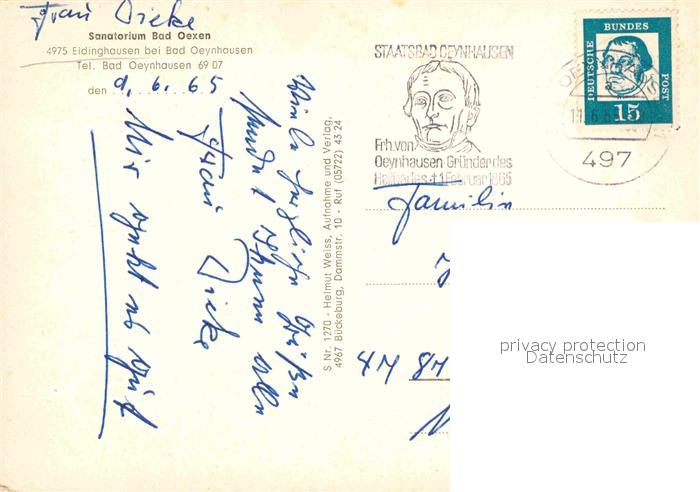 Frau Dicke
Sanatorium Bad Oexen
4975 Eidinghausen bei Bad Oeynhausen
Tel. Bad Oeynhausen 69 07
den 9. 6. 65
Viele herzliche Grüße
sendet Ihnen allen
Frau Dicke
Mir geht es gut
S Nr. 1270 - Helmut Weiss, Aufnahme und Verlag,
4967 Bückeburg, Dammstr. 10 - Ruf (05722) 43 24
STAATSBAD OEYNHAUSEN
Frh. von
Oeynhausen · Gründer des
Heilbades · † 1. Februar 1865
DEUTSCHE BUNDES POST
15
497
Familie
privacy protection
Datenschutz